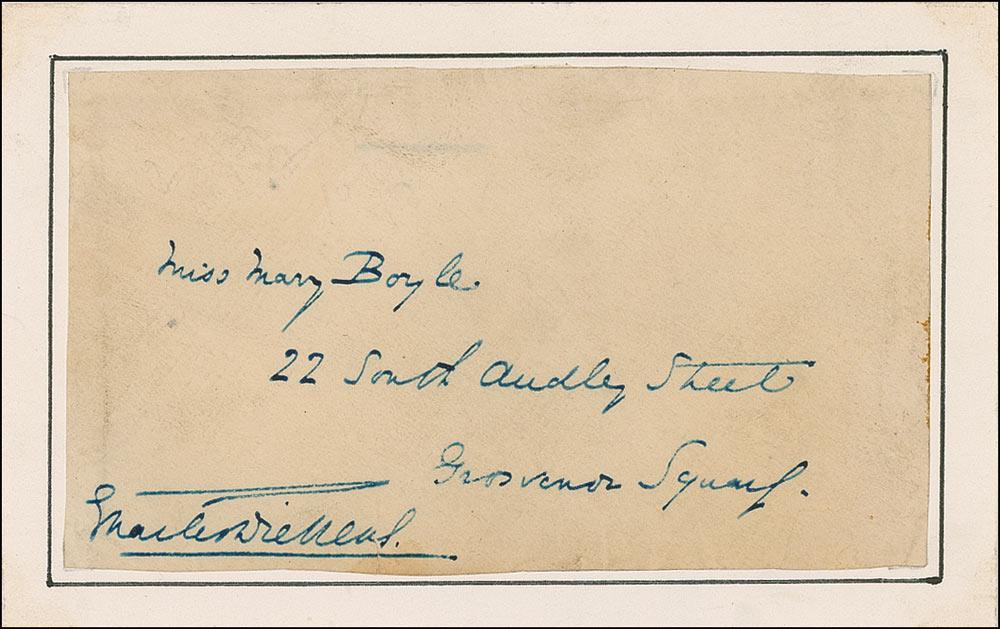 Miss Mary Boyle.
22 South Audley Street
Grosvenor Square.
Charles Dickens.